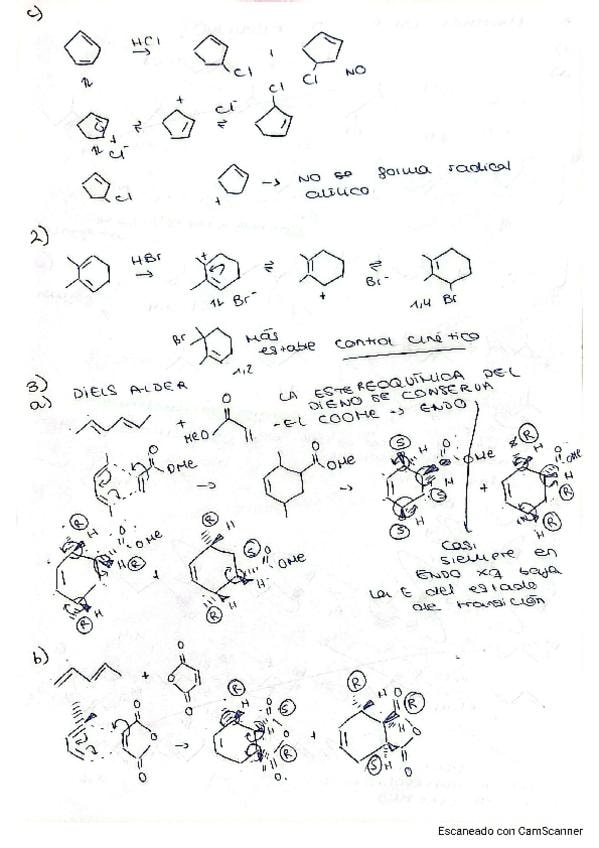 c)
HCl
+
Cl
Cl
NO
Cl
+
Cl⁻
⇌
⇌
+
Cl⁻
Cl
+
→ NO se forma radical
alílico
2)
HBr
→
+
⇌
⇌
Br⁻
+
Br⁻
1,4 Br
Br
Más
estable control cinético
1,2
3) DIELS ALDER
LA ESTEREOQUÍMICA DEL
DIENO SE CONSERVA
a)
+
MeO
O
H
- EL COOMe → ENDO
O
OMe
→
O
OMe
→
S
H
O
OMe
H
S
H
S
+
R
H
O
OMe
R
H
R
R
H
O
OMe
H
R
H
R
+
R
H
S
O
OMe
H
H
R
Casi
siempre en
ENDO xq baja
la E del estado
de transición
b)
+
O
O
O
O
O
O
→
R
H
O
S
O
R
H
O
+
R
H
O
R
H
O
S
H
O
Escaneado con CamScanner